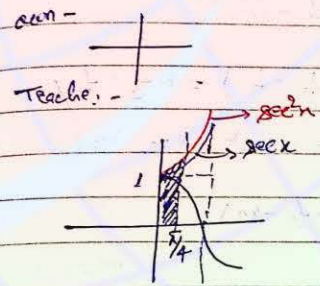 own -
Teache. -
sec²x
sec x
1
π/4